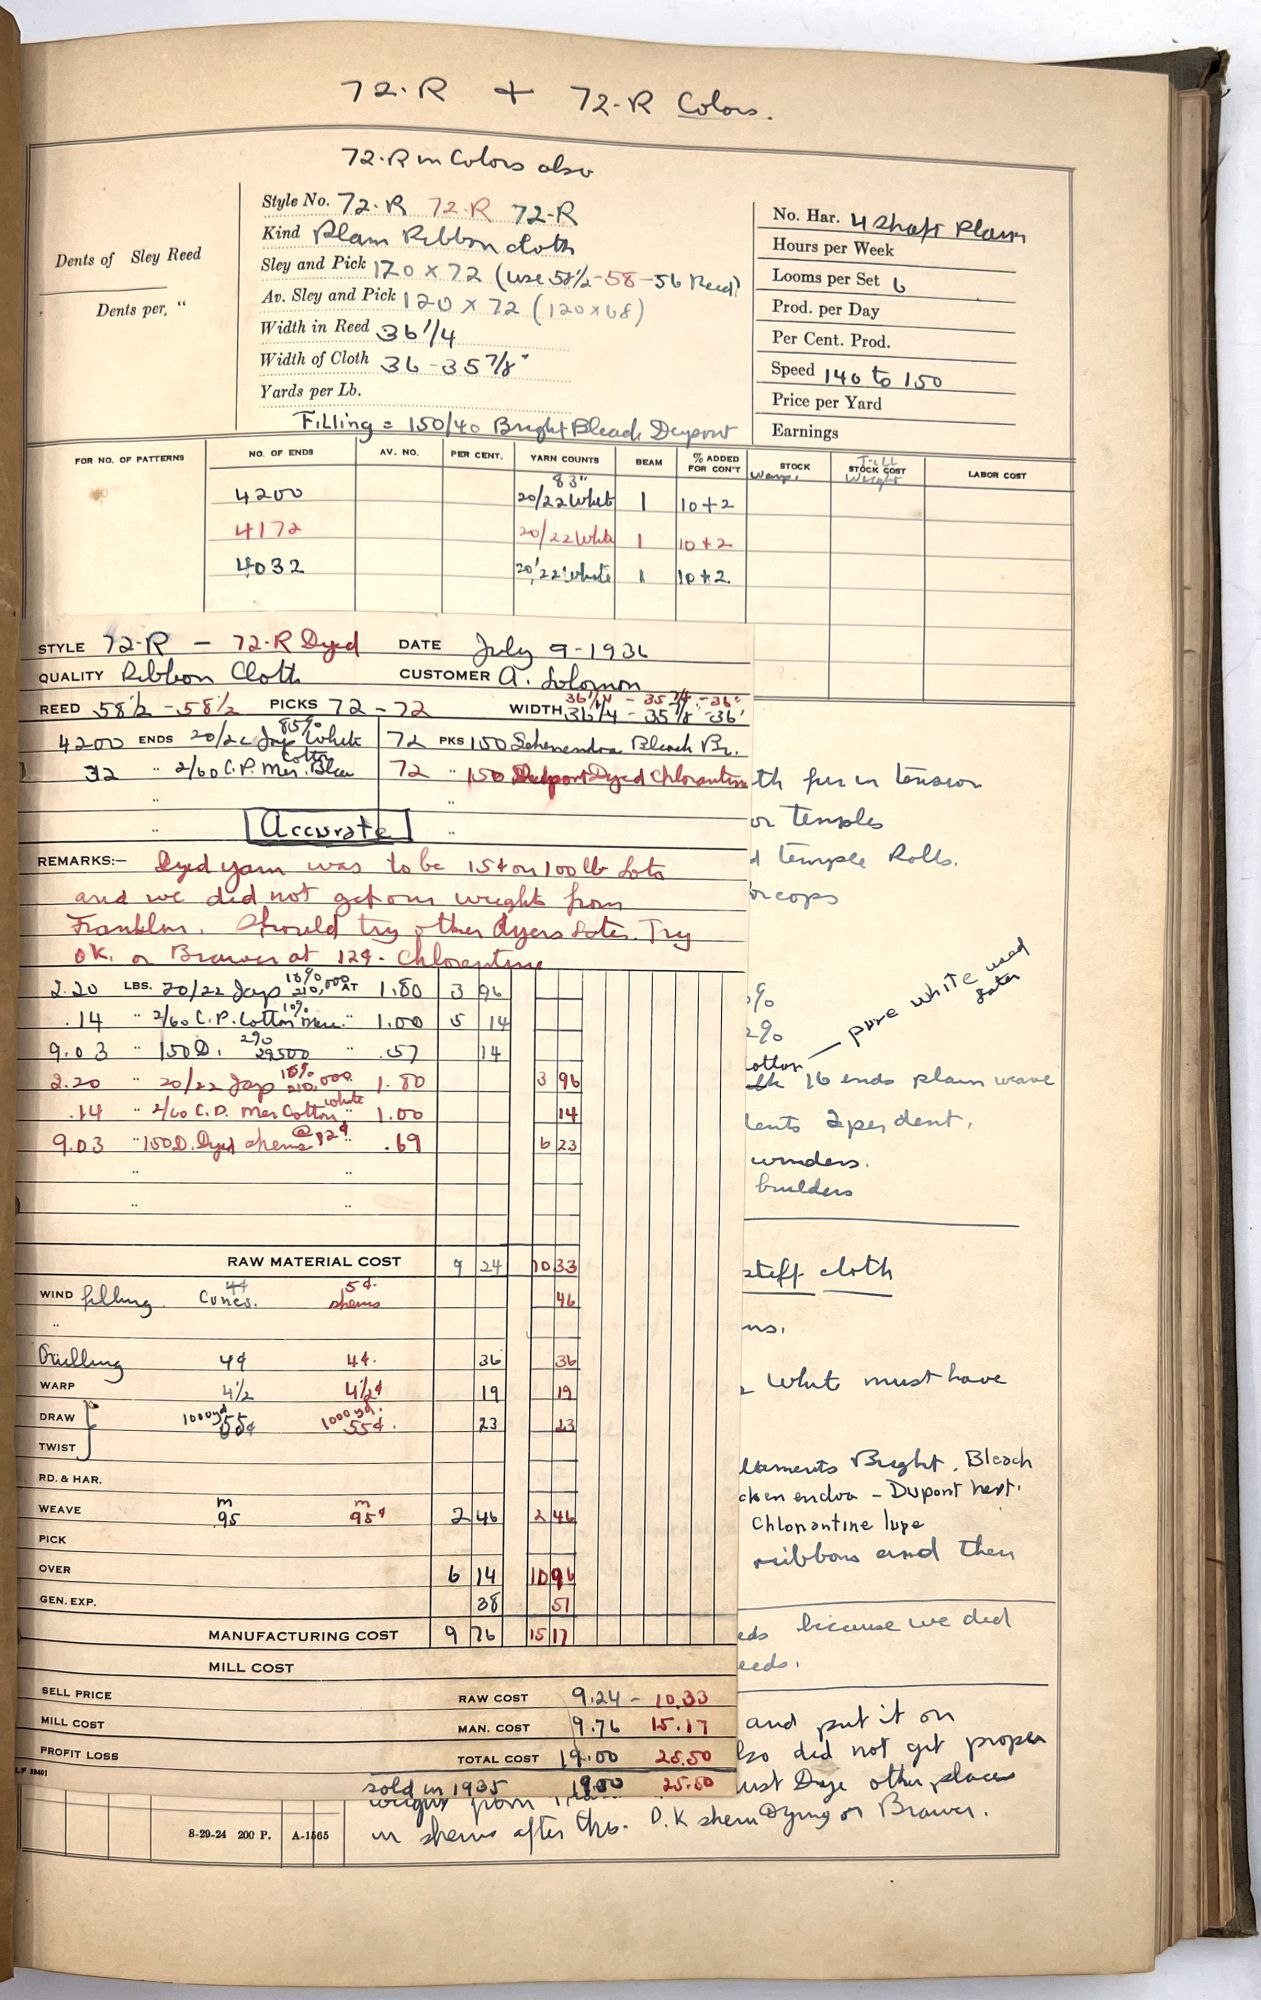 72-R + 72-R Colors.
72-R in Colors also
Dents of Sley Reed
Dents per, "
Style No. 72-R 72-R 72-R
Kind Plain Ribbon Cloth
Sley and Pick 120 x 72 (use 58½-58-56 Reed)
Av. Sley and Pick 120 x 72 (120x68)
Width in Reed 36 1/4
Width of Cloth 36 - 35 7/8"
Yards per Lb.
Filling = 150/40 Bright Bleach Dupont
No. Har. 4 Shaft Plain
Hours per Week
Looms per Set 6
Prod. per Day
Per Cent. Prod.
Speed 140 to 150
Price per Yard
Earnings
FOR NO. OF PATTERNS NO. OF ENDS AV. NO. PER CENT. YARN COUNTS BEAM % ADDED FOR CON'T STOCK Warp. Fill STOCK COST Weight LABOR COST
83"
4200 20/22 White 1 10+2
4172 20/22 White 1 10+2
4032 20/22 White 1 10+2.
STYLE 72-R - 72-R Dyed DATE July 9-1936
QUALITY Ribbon Cloth CUSTOMER A. Solomon
REED 58½ - 58½ PICKS 72 - 72 WIDTH 36 1/4 - 35 7/8 - 36"
36 1/4 - 35 7/8 - 36"
4200 ENDS 20/22 Jap 85% White 72 PKS 150 Schenendoa Bleach Br.
32 " 2/60 C.P. Mer. Cotton Blea 72 " 150 Dupont Dyed Chlorantine
" "
" Accurate "
REMARKS:- Dyed yarn was to be 15¢ on 100 lb Lots
and we did not get our weights from
Franklin. Should try other dyers Later. Try
OK. or Brawer at 12¢. Chlorantine
2.20 LBS. 20/22 Jap 18% 210,000 AT 1.80 3 96
.14 " 2/60 C.P. Cotton 10% Merc. " 1.00 5 14
9.03 " 150D. 2% 29500 " .57 14
2.20 " 20/22 Jap 18% 210,000 1.80 3 96
.14 " 2/60 C.P. Mer Cotton white " 1.00 14
9.03 " 150D. Dyed skeins @ 12¢ " .69 6 23
" "
" "
RAW MATERIAL COST 9 24 10 33
WIND filling 4¢ Cones. 5¢. skeins 46
"
Quilling 4¢ 4¢. 36 36
WARP 4½ 4½¢ 19 19
DRAW 1000 yd 55¢ 1000 yd. 55¢. 23 23
TWIST
RD. & HAR.
WEAVE m 95 m 95¢ 2 46 2 46
PICK
OVER 6 14 10 96
GEN. EXP. 38 51
MANUFACTURING COST 9 76 15 17
MILL COST
SELL PRICE RAW COST 9.24 - 10.33
MILL COST MAN. COST 9.76 15.17
PROFIT LOSS TOTAL COST 19.00 25.50
sold in 1935 19.00 25.50
th fur in tension
or temples
d temple Rolls.
or cops
%
2%
cotton — pure white used later
16 ends plain weave
dents 2 per dent.
winders.
builders
stiff cloth
ns.
White must have
laments Bright. Bleach
chenendoa - Dupont next.
Chlorantine
ribbons and then
eds because we did
eeds.
and put it on
lso did not get proper
ust Dye other places
weights from
in skeins after this. O.K skein Dying or Brawer.
8-29-24 200 P. A-1565